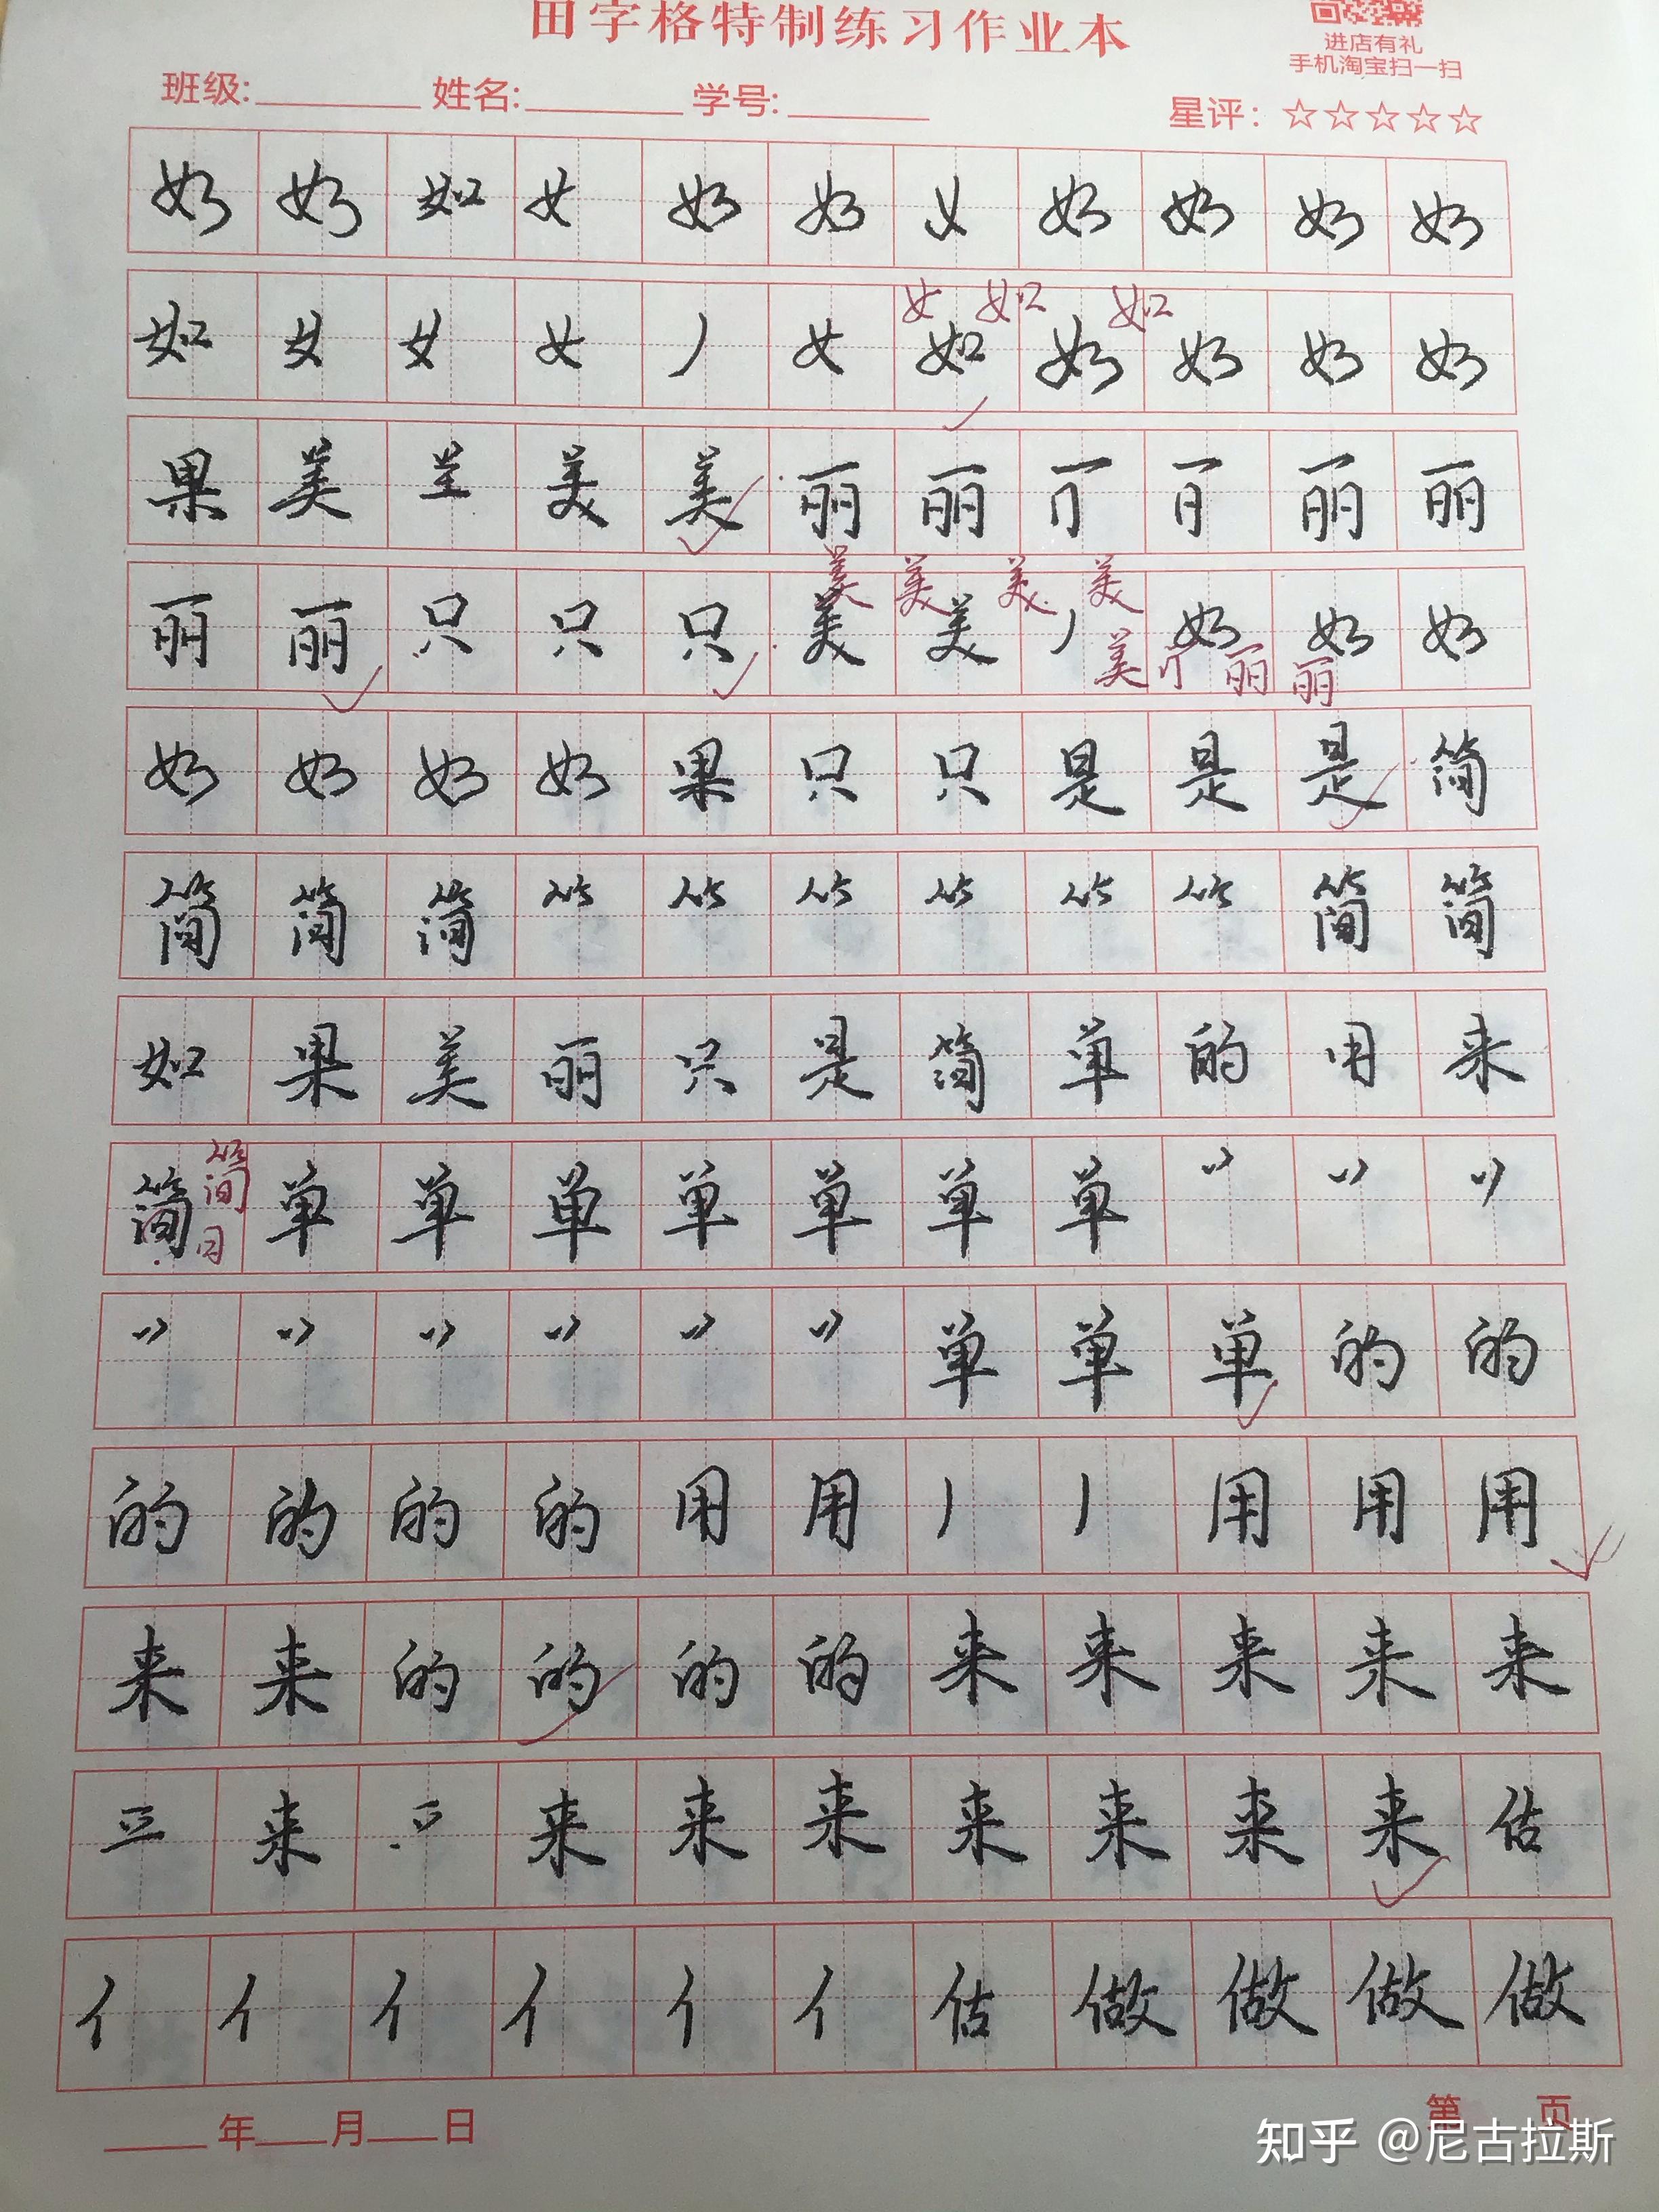 田字格特制练习作业本
进店有礼
手机淘宝扫一扫
班级: 姓名: 学号:
星评: ☆☆☆☆☆
如 如 如 女 如 如 如 如 如 如
女 如 如
如 女 女 女 丿 女 如 如 如 如 如
果 美 美 美 丽 丽 丽 丽
美 美 美 美
丽 丽 只 只 只 美 美 丿 如 如 如
美 丽 丽
如 如 如 如 果 只 只 是 是 是 简
简 简 简 简 简
如 果 美 丽 只 是 简 单 的 用 来
简
简 单 单 单 单 单 单 单
单 单 单 的 的
的 的 的 的 用 用 丿 丿 用 用 用
来 来 的 的 的 的 来 来 来 来 来
来 来 来 来 来 来 来 来 估
亻 亻 亻 亻 亻 亻 估 做 做 做 做
年 月 日
第 页
知乎 @尼古拉斯